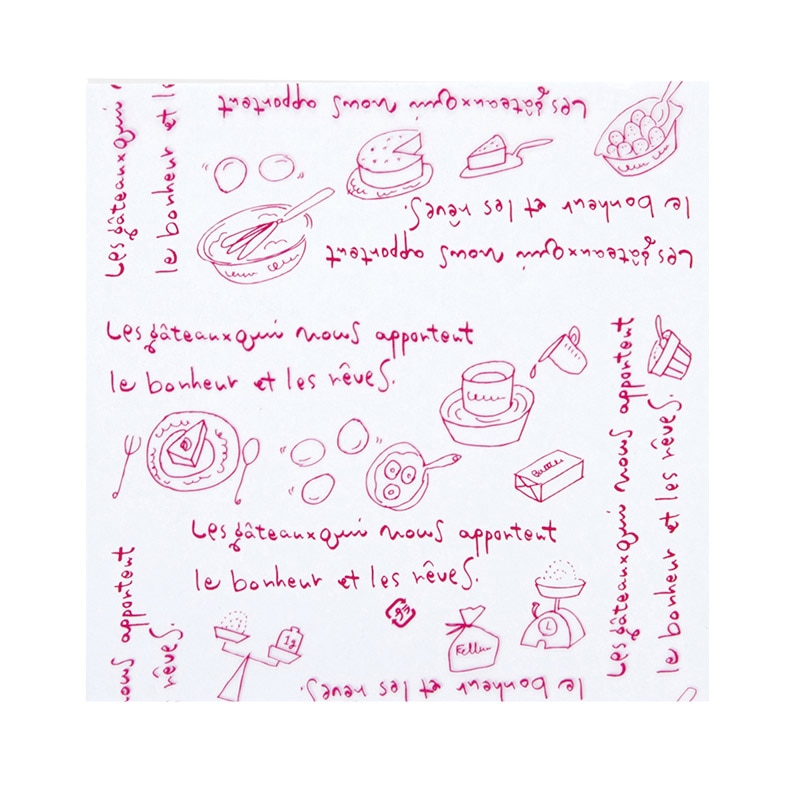 Les gâteaux qui nous apportent
le bonheur et les rêves.
Les gâteaux qui nous apportent
le bonheur et les rêves.
Les gâteaux qui
le bonheur et le
Les gâteaux qui nous apportent
le bonheur et les rêves.
Les gâteaux qui nous apportent
le bonheur et les rêves.
1g
L
nous apportent
rêves.
le bonheur et les rêves.